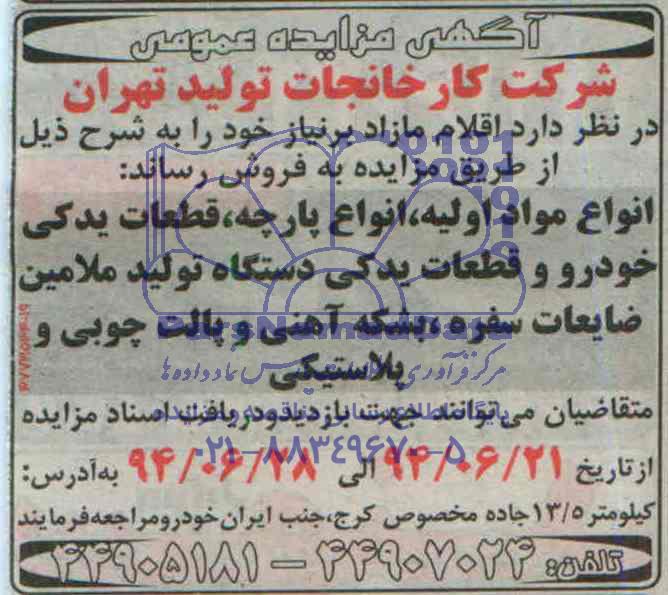 آگهی مزایده عمومی
شرکت کارخانجات تولید تهران
در نظر دارد اقلام مازاد برنیاز خود را به شرح ذیل
از طریق مزایده به فروش رساند:
انواع مواد اولیه،انواع پارچه،قطعات یدکی
خودرو و قطعات یدکی دستگاه تولید ملامین
ضایعات سفره ،بشکه آهنی و پالت چوبی و
پلاستیکی
متقاضیان می‌توانند جهت بازدیدودریافت اسناد مزایده
ازتاریخ ۹۴/۰۶/۲۱ الی ۹۴/۰۶/۲۸ به‌آدرس:
کیلومتر ۱۳/۵جاده مخصوص کرج،جنب ایران‌خودرومراجعه‌فرمایند
تلفن: ۴۴۹۰۷۰۲۴ – ۴۴۹۰۵۱۸۱
ParsNamadData
۰۲۱-۸۸۳۴۹۶۷۰-۵